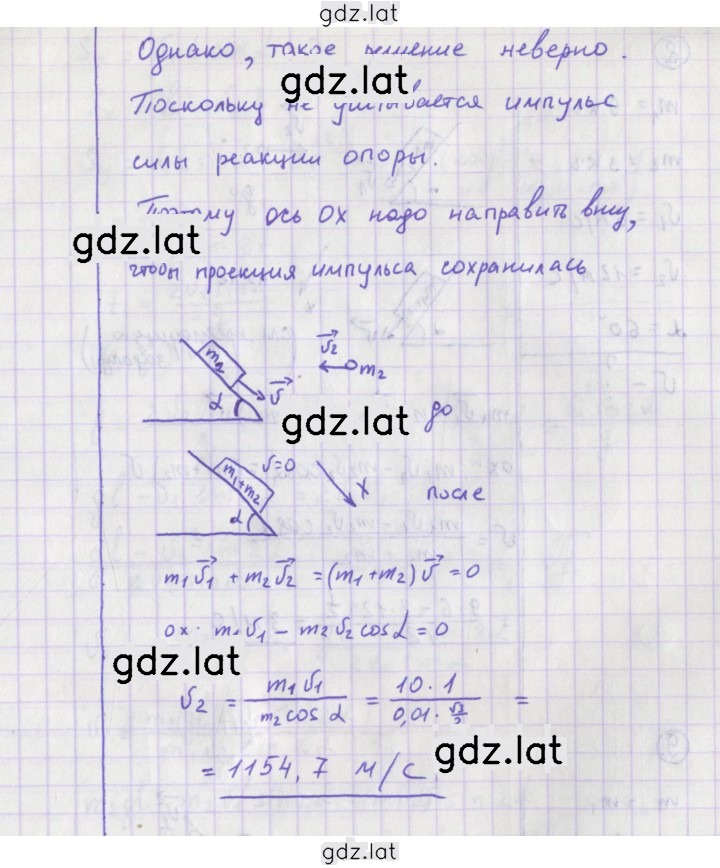 gdz.lat
Однако, такое решение неверно.
gdz.lat
Поскольку не учитывается импульс
силы реакции опоры.
Поэтому ось OX надо направить вниз,
gdz.lat
чтобы проекция импульса сохранилась
m2
v⃗2
m2
v⃗
α
до
gdz.lat
v=0
m1+m2
α
X
после
m1v⃗1 + m2v⃗2 = (m1+m2)v⃗ = 0
ox: m1v1 − m2v2 cosα = 0
gdz.lat
v2 = m1v1 / (m2 cos α) = 10·1 / (0,01·√3/2) =
gdz.lat
= 1154,7 м/с
gdz.lat